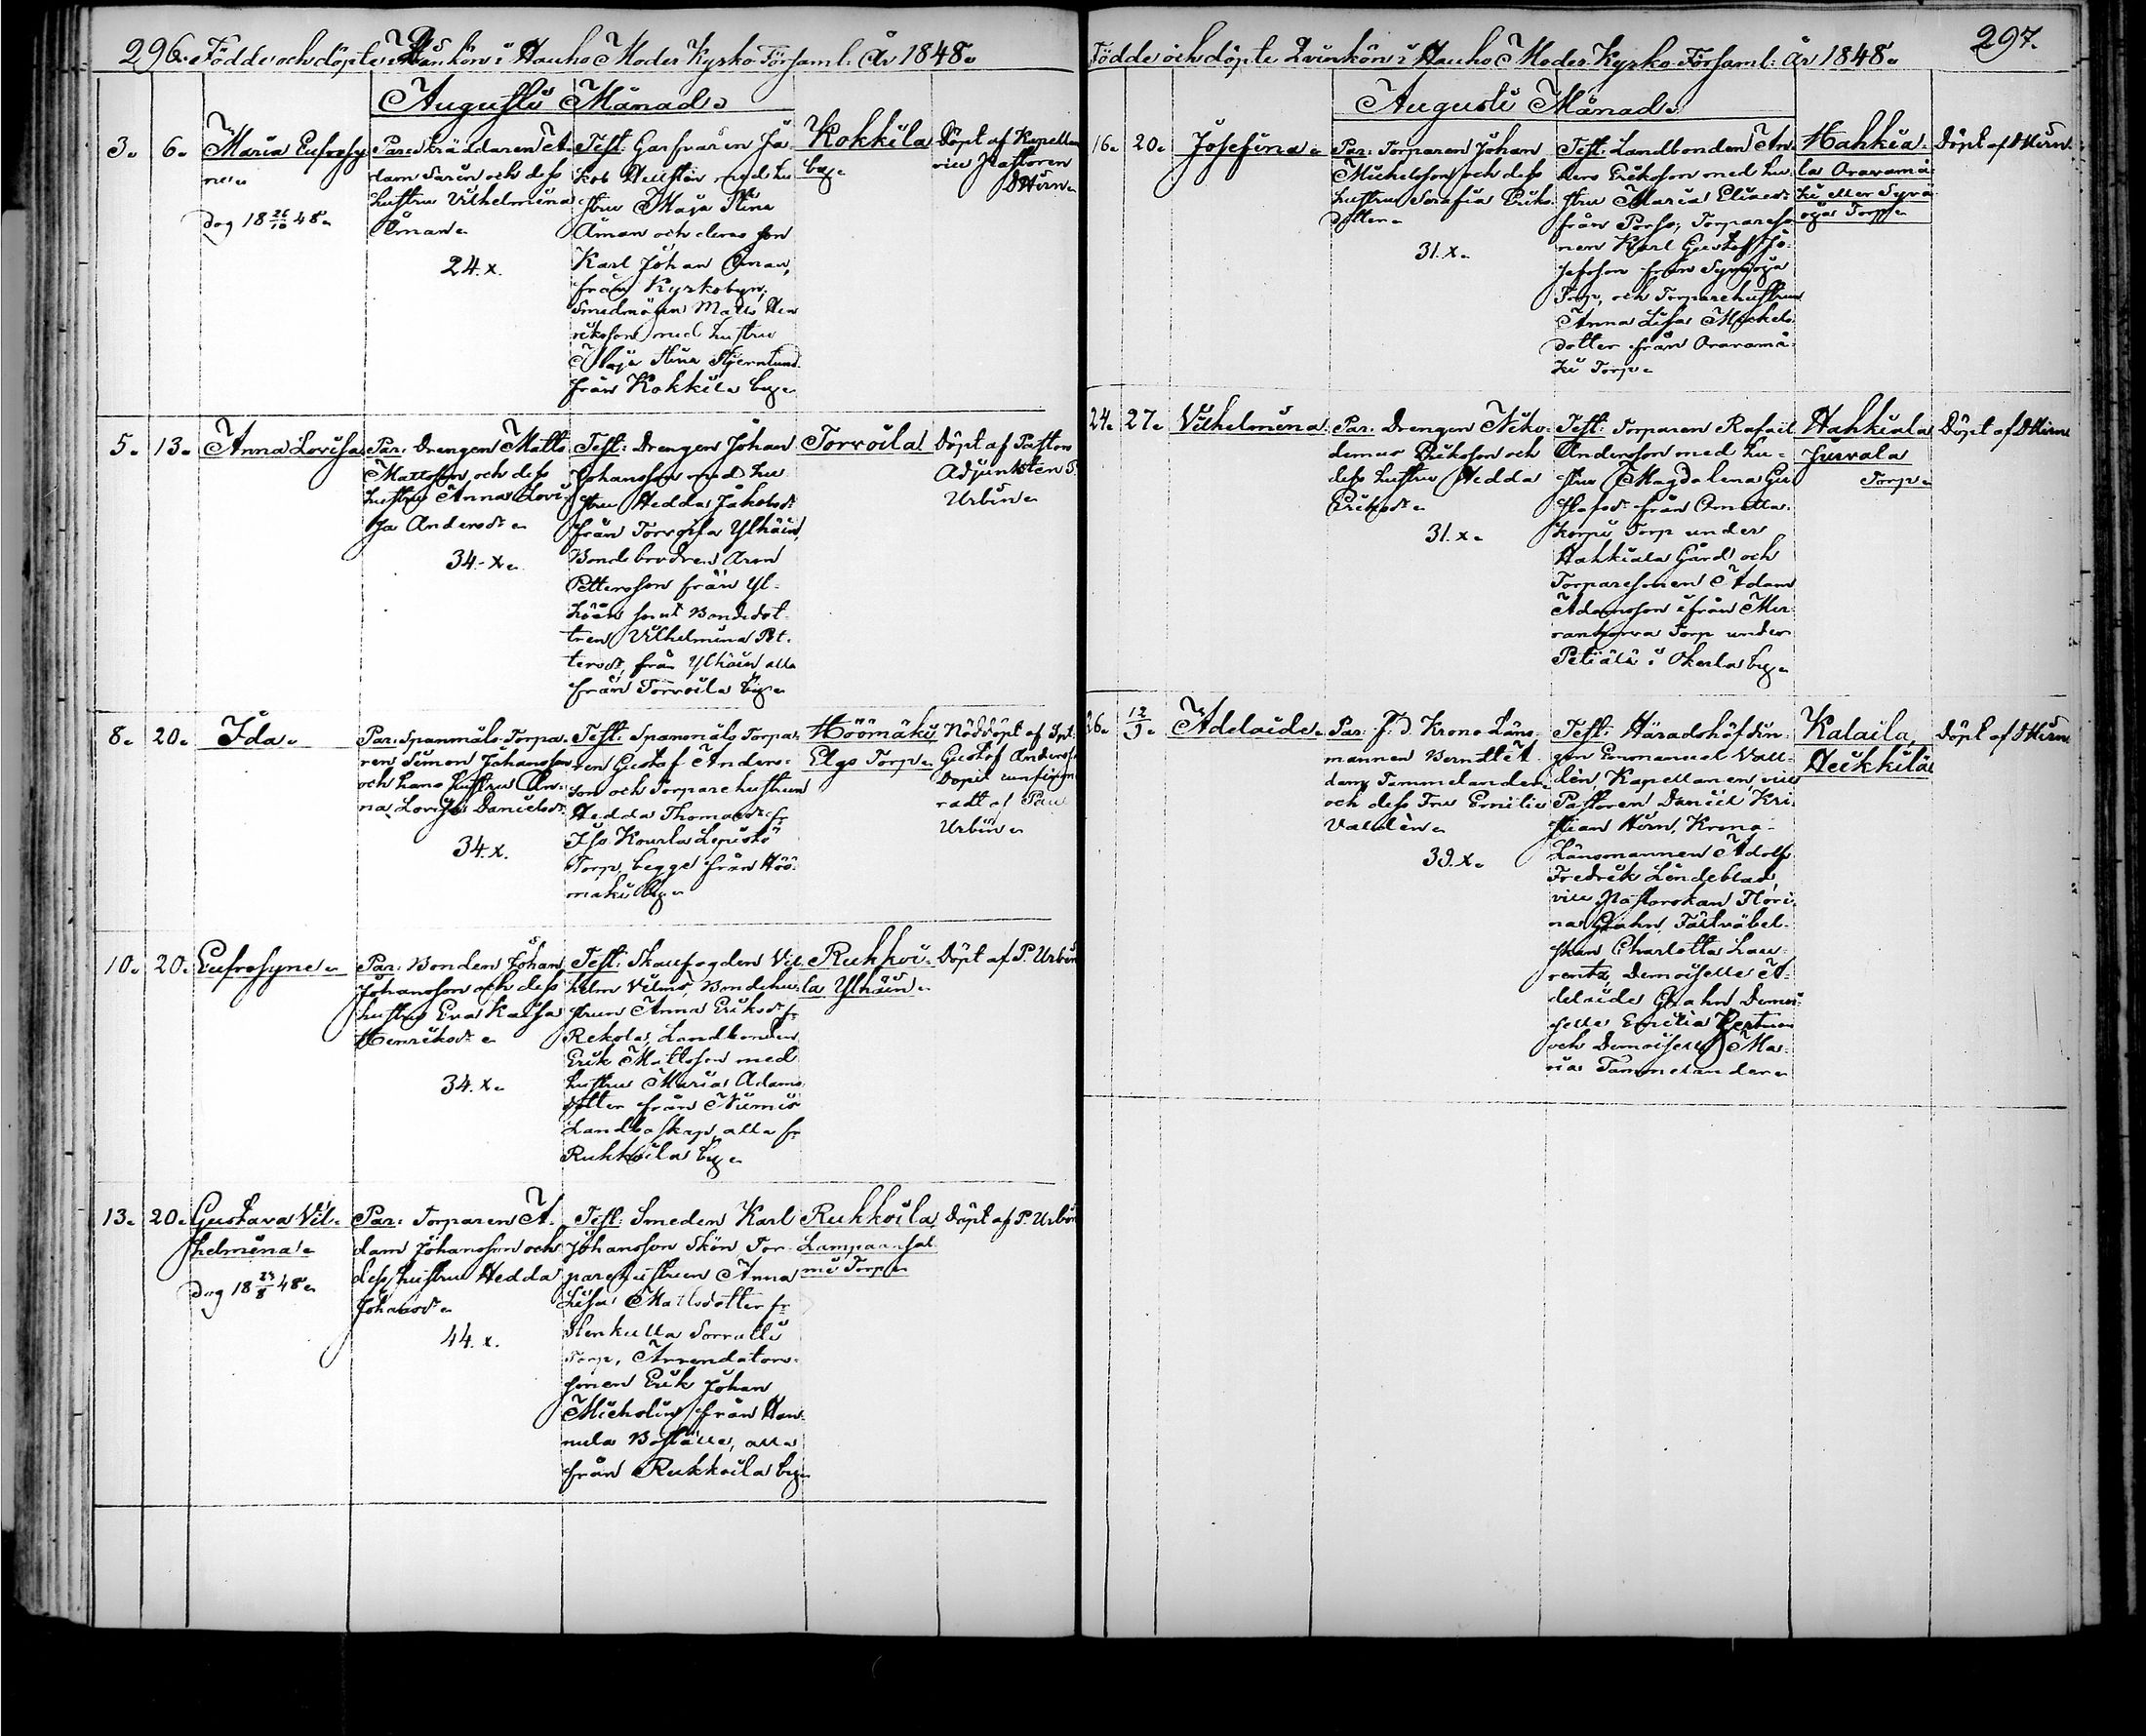 296. Födde och döpte Qvinkön i Hauho Moder Kyrko Församl. År 1848.
Augusti Månad.
3. 6. Maria Eufrosy
ne.
Dog 18 26/10 48.
Par: Skräddaren A
dam Sarin och dess
hustru Vilhelmina
Öman.
24. x.
Test: Garfvaren Ja
kob Hellsten med hu
stru Maja Stina
Åman och deras son
Karl Johan Öman,
från Kyrkobyn;
Smedmågen Matts Hen
riksson med hustru
Maja Stina Stjernlund
från Kokkila by.
Kokkila
by.
Döpt af Kapellan
vice Pastoren
D Hirn.
5. 13. Anna Lovisa
Par: Drengen Matts
Mattsson och dess
hustru Anna Lovi
sa Andersdr.
34. x.
Test: Drengen Johan
Johansson med hu
stru Hedda Jakobsdr
från Torvoila Ylhäin,
Bondebrodren Aron
Pettersson från Yl-
häin samt Bondedot
tren Vilhelmina Pet
tersdr, från Ylhäin alla
från Torvoila by.
Torvoila
Döpt af Pastors
Adjunkten P.
Urbin.
8. 20. Ida.
Par: Spanmåls Torpa
ren Simon Johansson
och hans hustru An
na Lovisa Danielsdr.
34. x.
Test: Spanmåls Torpa
ren Gustaf Anders
son och Torparehustrun
Hedda Thomasdr fr
Iso Kourla Lepistö
Torp, begge från Höö
mäki by.
Höömäki
Elgs Torp.
Nöddöpt af
Gustaf Anders
Dopet
radt af Past
Urbin.
10. 20. Eufrosyne.
Par: Bonden Johan
Johansson och dess
hustru Eva Kaisa
Henriksdr.
34. x.
Test: Skaufogden Vil
helm Vilmi, Bondehu
strun Anna Eriksdr fr
Rekola, Landbonden
Erik Mattsson med
hustru Maria Adams
dotter från Niemis
Landboskap, alla fr
Rukkoila by.
Rukkoi-
la Ylhäin.
Döpt af P. Urbin
13. 20. Gustava Vil-
helmina.
Dog 18 24/8 48.
Par: Torparen A
dam Johansson och
dess hustru Hedda
Johansdr.
44. x.
Test: Smeden Karl
Johansson Skön, Tor
parehustrun Anna
Lisa Mattsdotter fr
Stenkulla Sorralli
Torp, Arrendators
sonen Erik Johan
Michelin från Han
nula Boställe, alla
från Rukkoila by.
Rukkoila
Lampaansal
mi Torp.
Döpt af P. Urbin
Födde och döpte Qvinkön i Hauho Moder Kyrko Församl: År 1848.
297.
Augusti Månad.
16. 20. Josefina.
Par: Torparen Johan
Michelsson och dess
hustru Serafia Eriks
dotter.
31. x.
Test: Landbonden An
ders Eriksson med hu
stru Maria Eliaedr
från Porso; Torpareso
nen Karl Gustaf Jo
sefsson från Syväoja
Torp, och Torparehustrun
Anna Lisa Mickels
dotter från Oravamä
ki Torp.
Hahkia
la Oravamä
ki eller Syvä
oja Torp.
Döpt af D Hirn
24. 27. Vilhelmina.
Par: Drengen Niko
demus Eriksson och
dess hustru Hedda
Eriksdr.
31. x.
Test: Torparen Rafael
Andersson med hu-
stru Magdalena Gu
stafsdr från Ometta
korpi Torp under
Hahkiala Gård och
Torparesonen Adam
Adamsson ifrån Mu
rankorva Torp under
Petiälä i Okerla by.
Hahkiala
Juvala
Torp.
Döpt af D Hirn
26. 12/9. Adelaide.
Par: F. d. Krono Läns
mannen Berndt A
dam Tammelander
och dess Fru Emilie
Valldén.
39. x.
Test: Häradshöfdin
gen Emmanuel Vall-
dén, Kapellanen, vice
Pastoren Daniel Kri
stian Hirn, Krono-
Länsmannen Adolf
Fredrik Lindeblad,
vice Pastorskan Flori
na Grahn, Fältväbel
skan Charlotta Lau-
rentz, Demoiselle A-
delaide Grahn, Demoi
selle Emilia
och Demoiselle Ma-
ria Tammelander.
Kalaila,
Heikkilä
Döpt af D Hirn